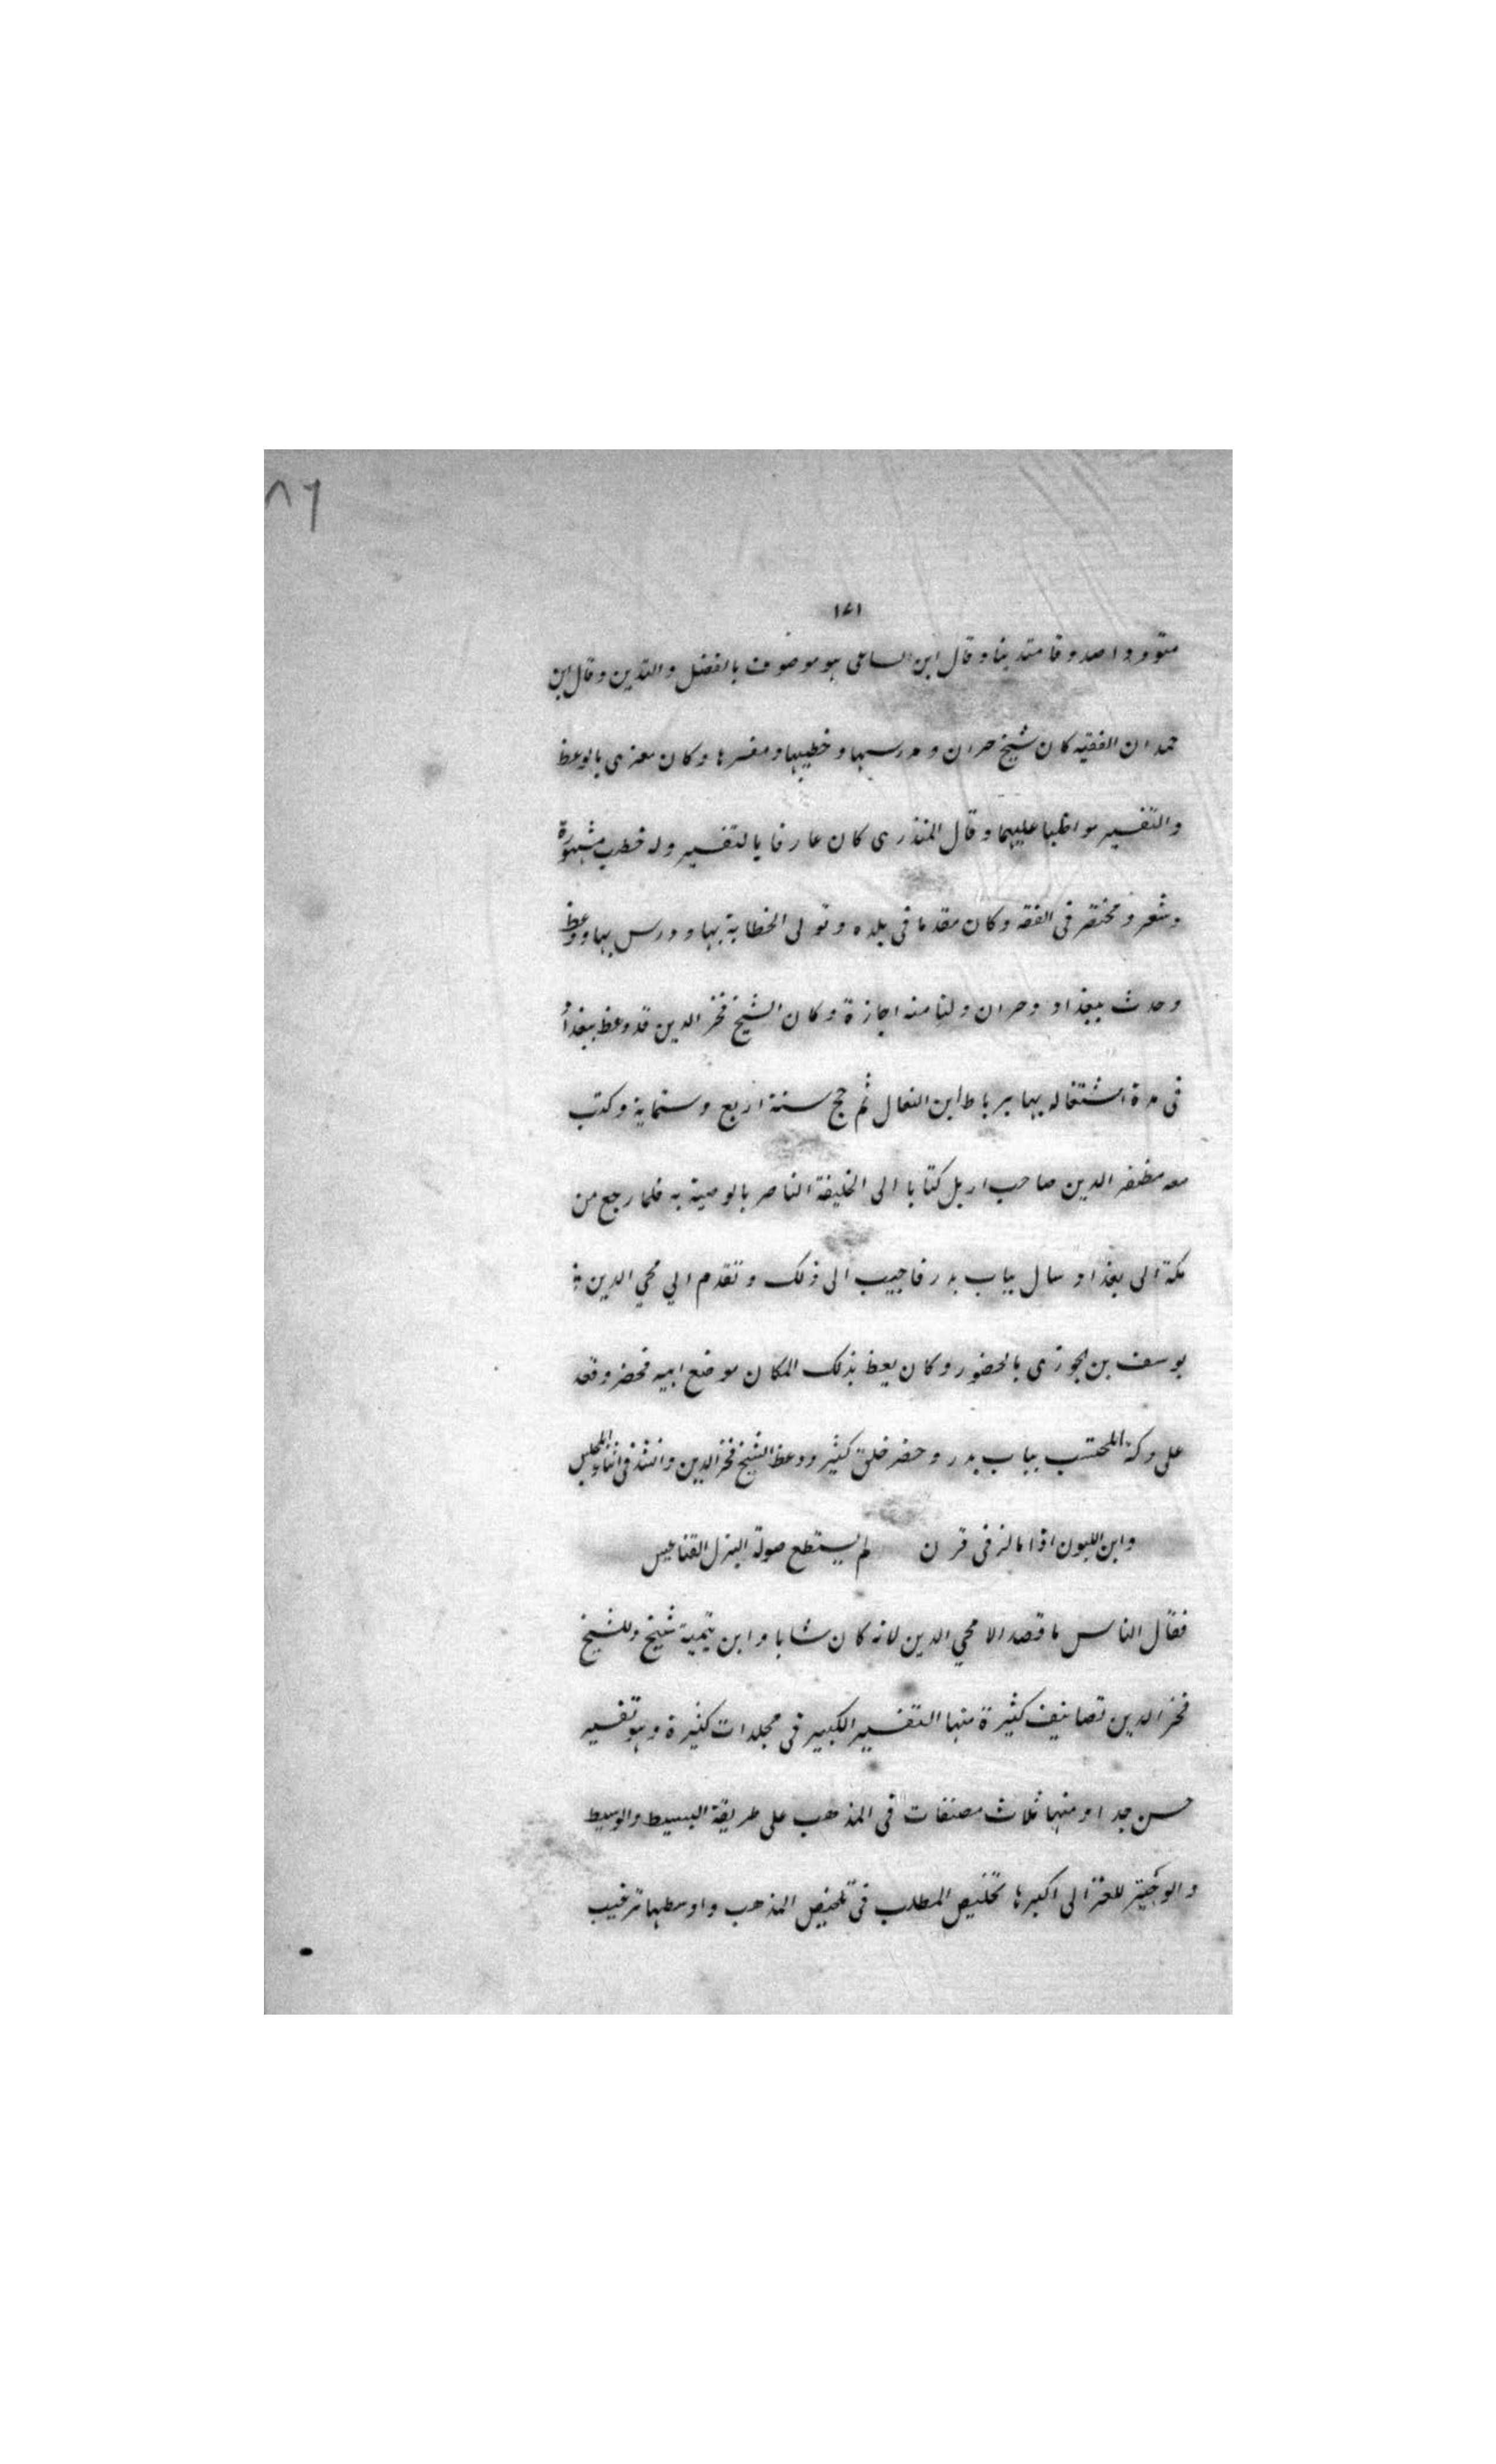 ٨٦
١٧١
متوددا صدوقا متدينا وقال ابن الساعى هو موصوف بالفضل والتدين وقال ابن
حمدان الفقيه كان شيخ حران و مدرسها و خطيبها ومفسرها وكان معزى بالوعظ
والتفسير مواظبا عليهما وقال المنذرى كان عارفا بالتفسير وله خطب مشهورة
وشعر و مختصر فى الفقه وكان مقدما فى بلده وتولى الخطابة بها ودرس بها ووعظ
وحدث ببغداد وحران ولنا منه اجازة وكان الشيخ فخر الدين قد وعظ ببغداد
فى مدة اشتغاله بها برباط ابن النعال ثم حج سنة اربع وستماية وكتب
معه مظفر الدين صاحب اربل كتابا الى الخليفة الناصر بالوصية به فلما رجع من
مكة الى بغداد سال بباب بدر فاجيب الى ذلك وتقدم الي محي الدين
يوسف بن الجوزى بالحضور وكان يعظ بذلك المكان موضع ابيه فحضر وقعد
على دكة المحتسب بباب بدر وحضر خلق كثير ووعظ الشيخ فخر الدين وانشد فى اثناء المجلس
وابن اللبون اذا ما لز فى قرن لم يستطع صولة البزل القناعيس
فقال الناس ما قصد الا محي الدين لانه كان شابا وابن تيمية شيخ وللشيخ
فخر الدين تصانيف كثيرة منها التفسير الكبير فى مجلدات كثيرة وهو تفسير
حسن جدا ومنها ثلاث مصنفات فى المذهب على طريقة البسيط والوسيط
والوجيز للغزالى اكبرها تخليص المطلب فى تلخيص المذهب واوسطها ترغيب